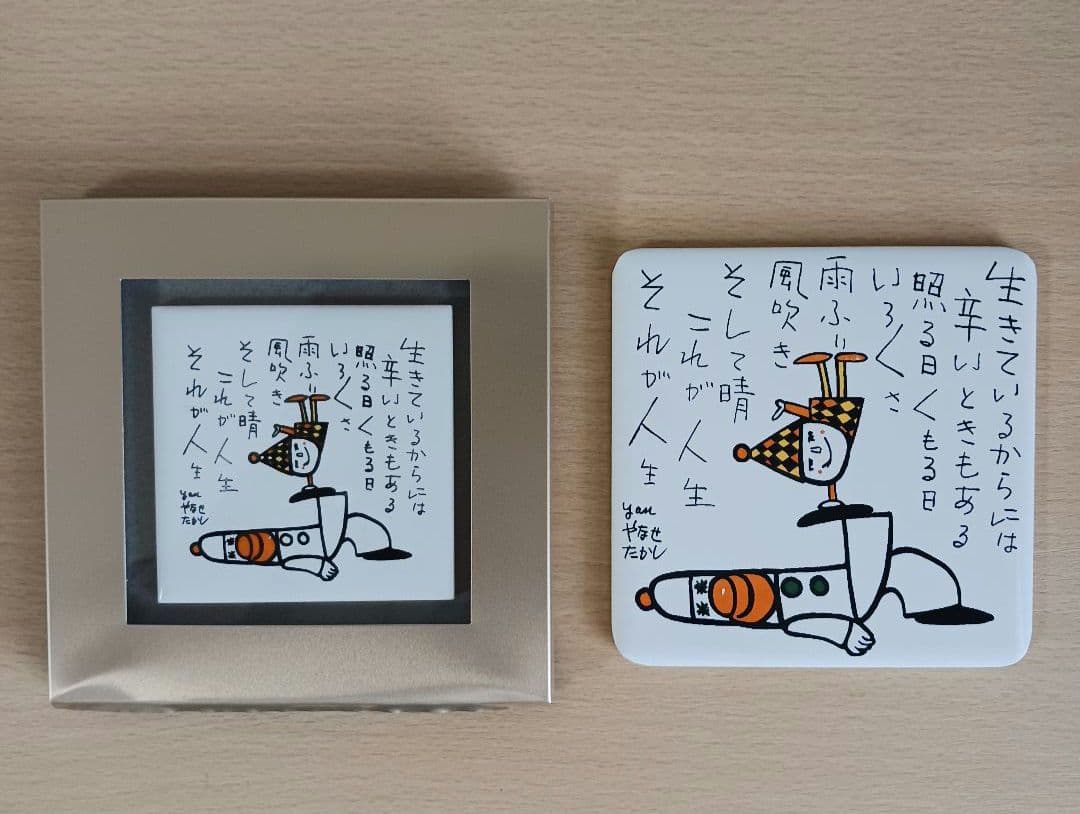 生きているからには
辛いときもある
照る日くもる日
いろ〱さ
雨ふり
風吹き
そして晴
これが人生
それが人生
yan
やなせ
たかし
生きているからには
辛いときもある
照る日くもる日
いろ〱さ
雨ふり
風吹き
そして晴
これが人生
それが人生
yan
やなせ
たかし